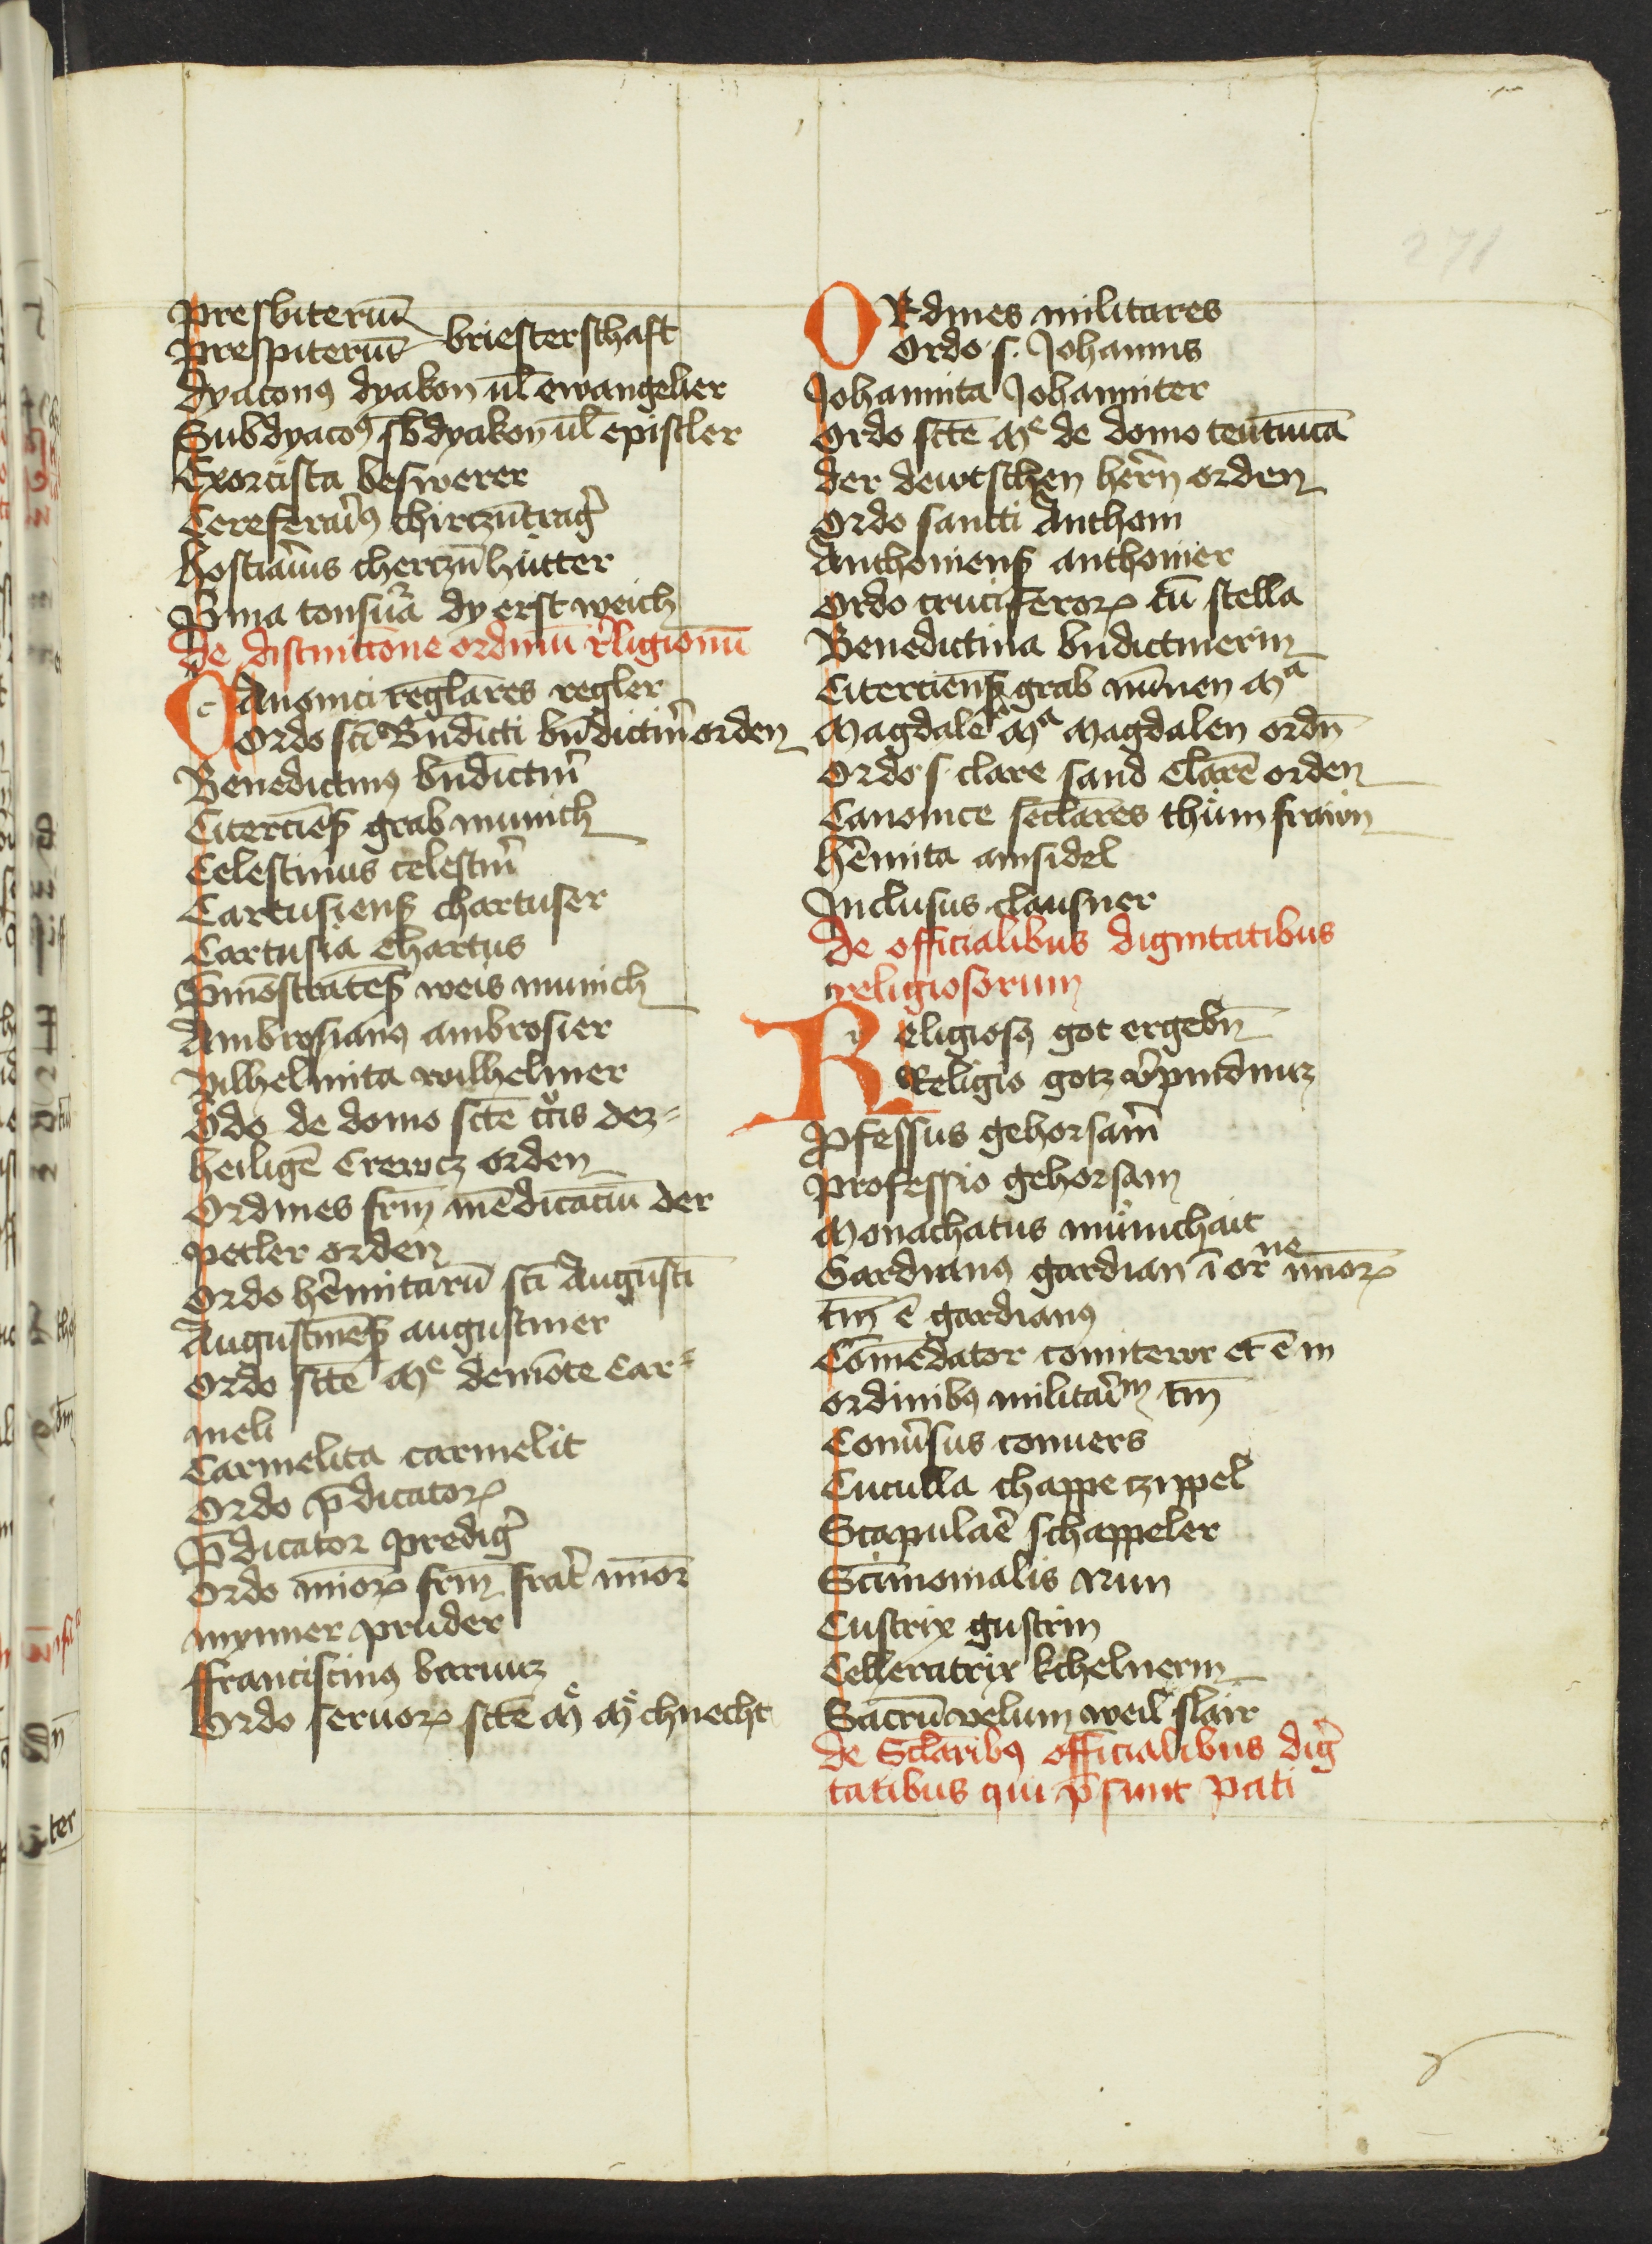 271
presbiteriū
prespiteriū briesterschaft
dyaconꝰ dyakon ul̄ ewangelier
Subdyacoꝰ sb̄dyakon ul̄ epistler
Exorcista beswerer
Cereferariꝰ chirczn̄trag̉
hostiarius cherczn̄ hütter
Pͥma tonsura dy erst weich
de distinictōne ordinū religionū
Canonici reglares regler
Ordo sci Bn̄dicti bn̄dictiner orden
Benedictinꝰ bn̄dictin̉
Cisterciēꝭ grab munich
Celestinus celestin̉
Cartusienꝭ chartuser
Cartusia Chartus
P̄mōstratēꝭ weis munich
Ambrosianꝰ ambrosier
Wilhelmita wilhelmer
Ordo de domo scte cͥcis dez=
heiligē Crewcz orden
Ordines frm̄ mēdicaciū der
petler orden
Ordo hēmitarū sci Augusti
Augustinēꝭ augustiner
Ordo scte Mͤ de mōte Car=
meli
Carmelita carmelit
Ordo p̄dicatoꝝ
P̄dicator predig̉
Ordo mīoꝝ frm̄ frat̉ mīor
mynner pruder
ffranciscinꝰ barfucz
Ordo seruoꝝ scte Mͤ Mͤ chnecht
ORdines militares
Ordo s. Johannis
Johannita Johanniter
Ordo scte Mͤ de domo teutuica
der dewtschen hern̄ orden
Ordo sancti Anthoni
Anthonienꝭ anthonier
Ordo cruciferoꝝ cū stella
Benedictina bn̄dictinerin
Citerciēnꝭ grab nūnen Mͣ
Magdalē Mͣ Magdalen ordn̄
Ordo s. clare sand Clarē orden
Canonice seclares thům frawn
hēmita ainsidel
Inclusus clausner
de officialibus dignitatibus
religiosorum
Religiosꝰ got ergebn̄
Religio gotz v̉pindnuz
Pfessus gehorsam̉
Professio gehorsam
Monachatus münichait
Gardianꝰ gardian ī orͫᵉ mīoꝝ
tm̄ ē gardianꝰ
Comēdator comitewr et ē in
ordinibꝰ militarͥᵐ tm̄
Conủsus conuers
Cuculla chappe czippel
Scapulare schappeler
Sc̄imonialis Nun
Custrix gustrin
Celleratrix kchelnerin
Sacrū velum weil slair
de Sclaribꝰ officialibus dig̉
tatibus qui p̄sunt pati